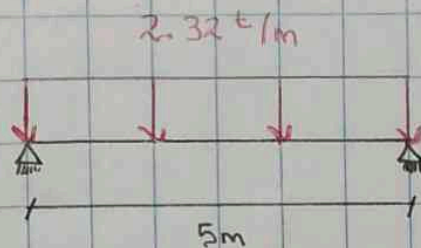 2.32 t/m
5m